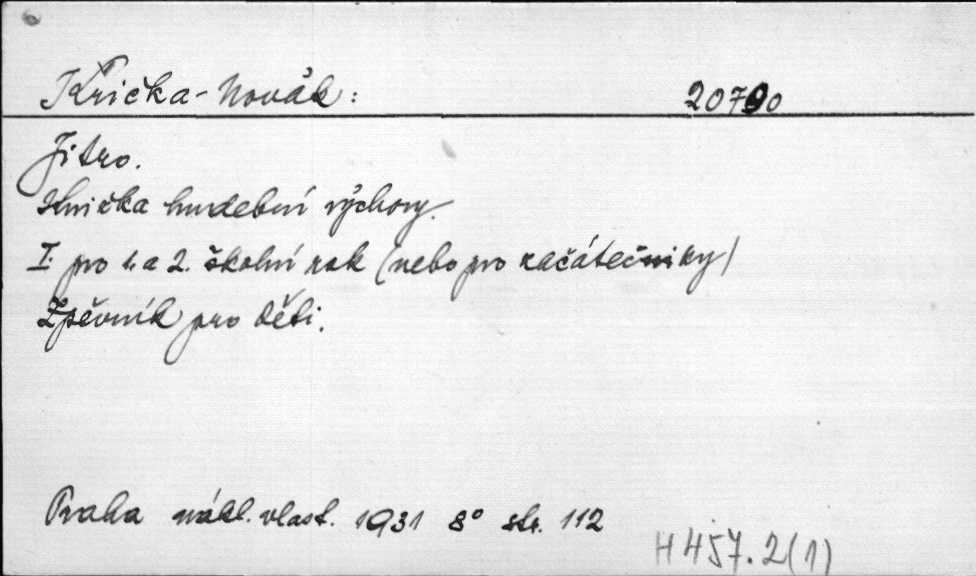 Křička-Novák: 20790
Jitro.
Knížka hudební výchovy.
I. pro 1. a 2. školní rok (nebo pro začátečníky)
Zpěvník pro děti.
Praha nákl. vlast. 1931 8° str. 112
H 457.2(1)